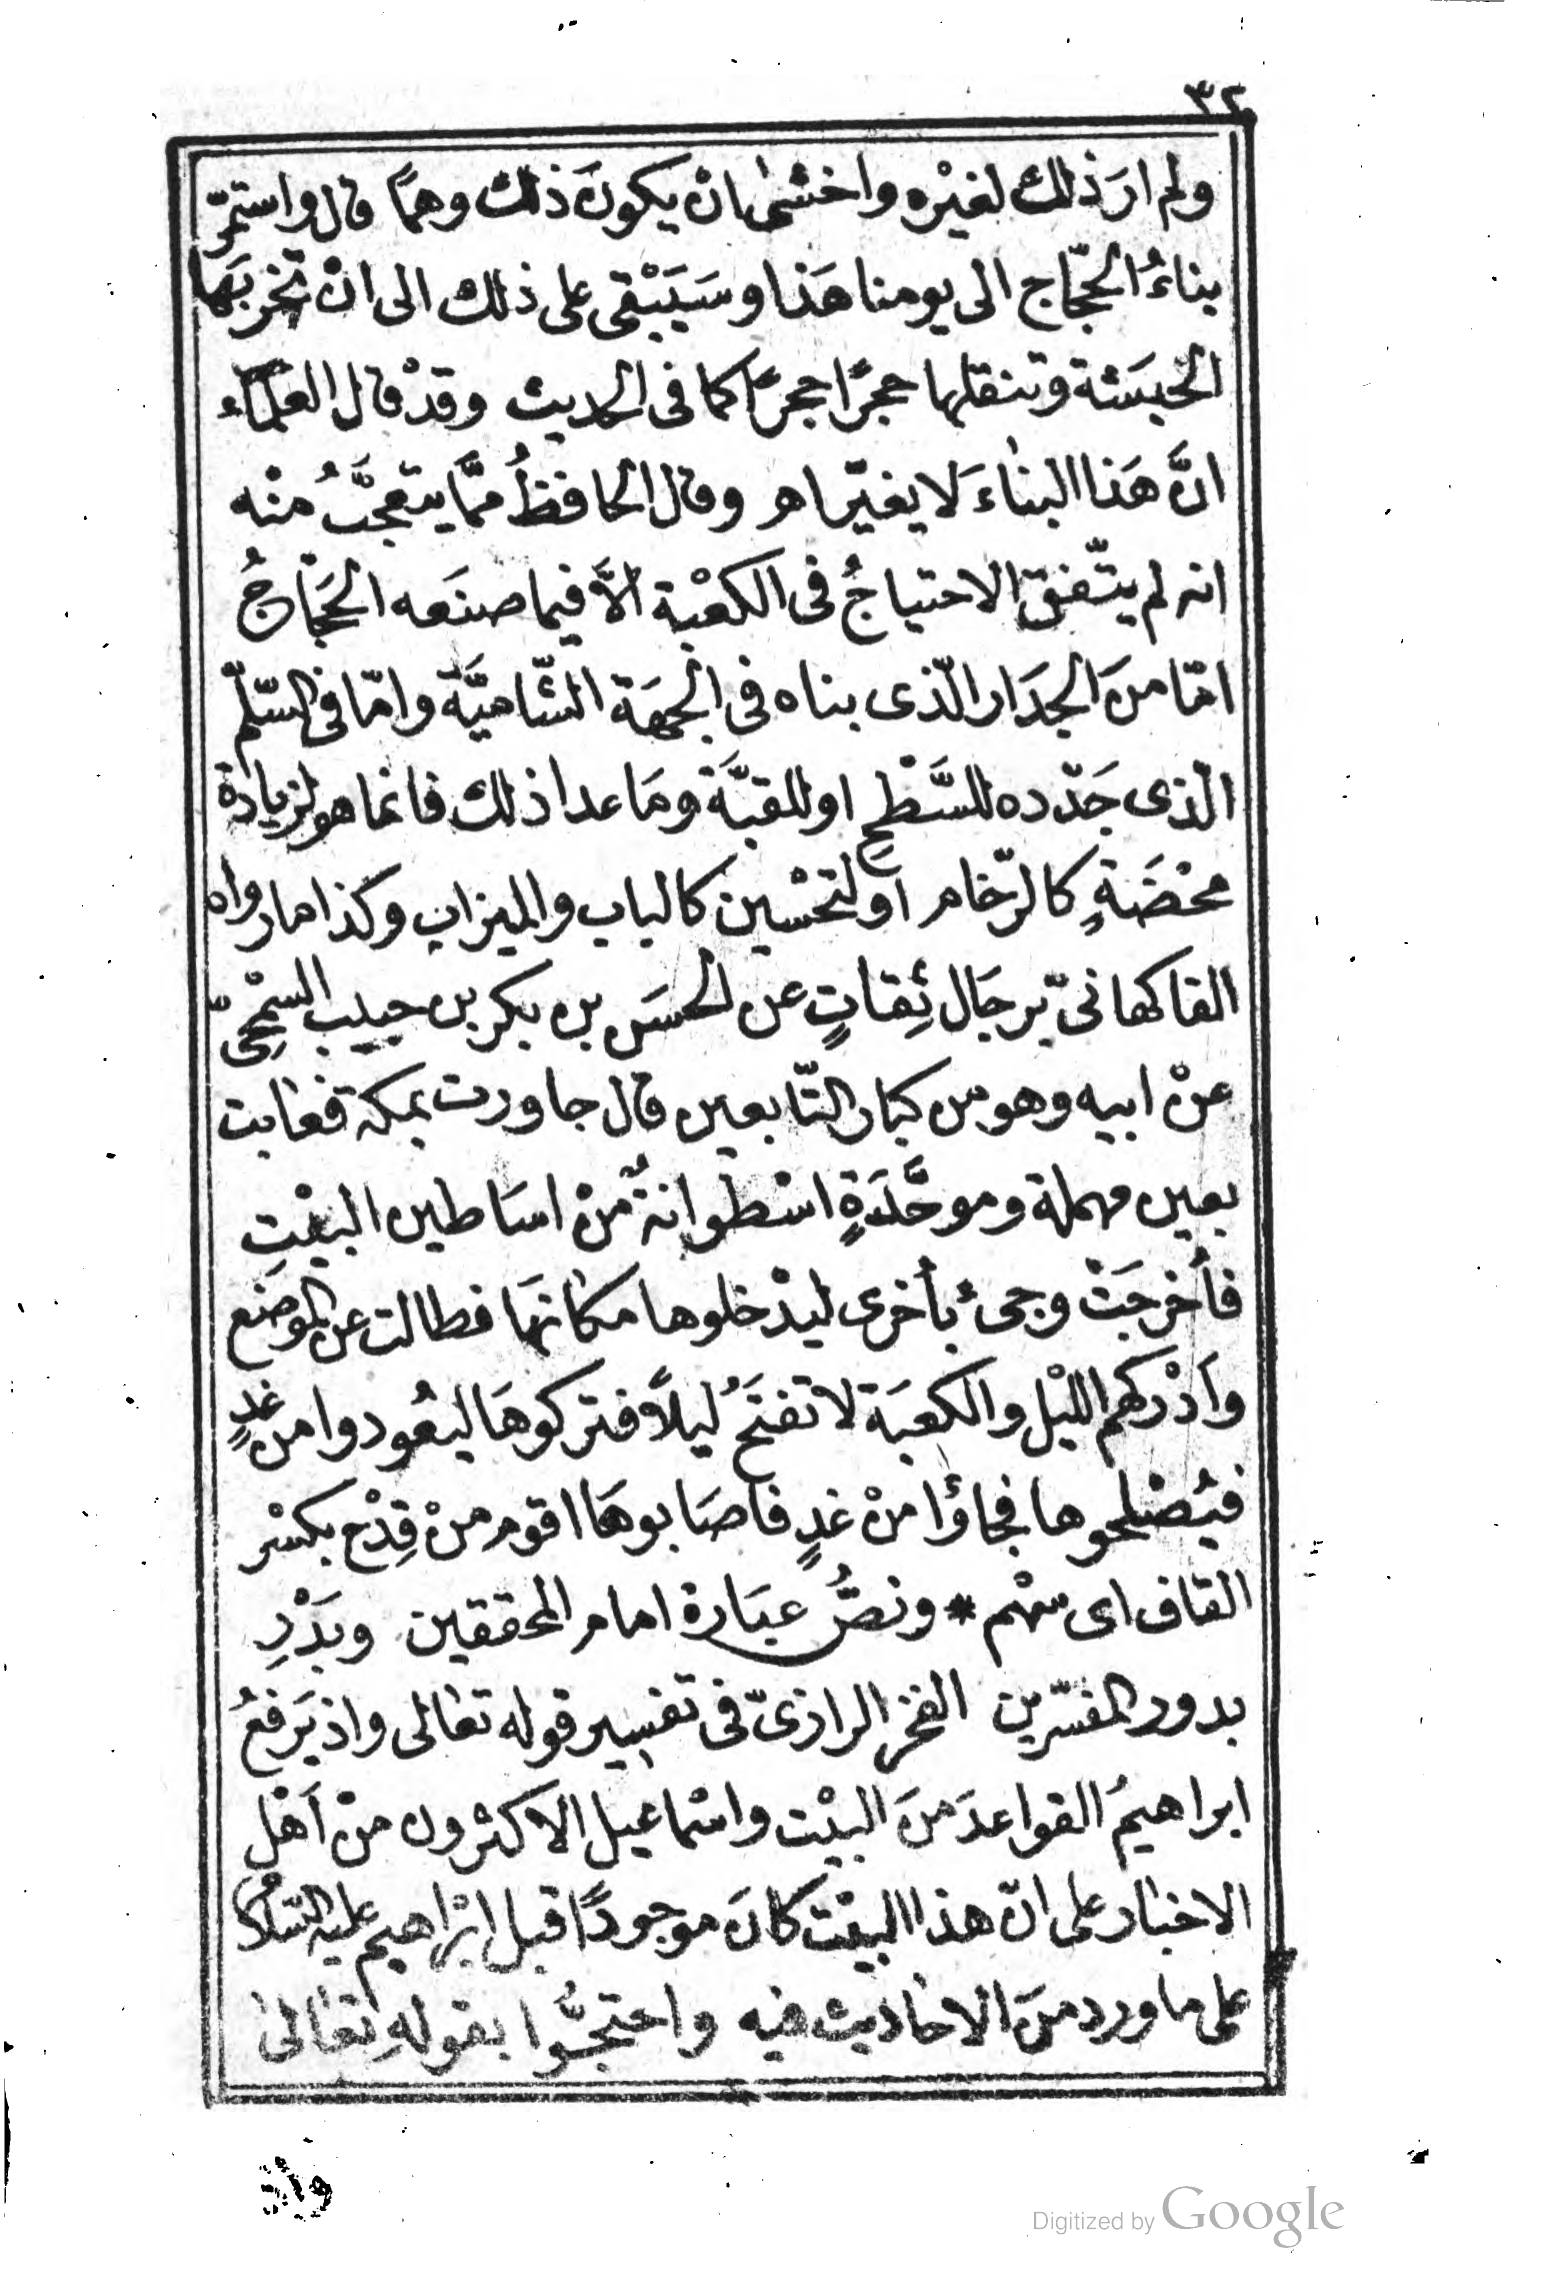 ٣٢
ولم ارَ ذلك لغيْره واخشىٰ انْ يكونَ ذلك وهمًا قال واستمرّ
بناءُ الحجّاج الى يومنا هَذا وسَيَبْقى على ذلك الى انْ تخربَها
الحبشة وتنقلها حجرًا حجرًا كما فى الحديث وقدْ قال العلمَاء
انَّ هَذا البنٰاءَ لا يغيّر اهـ وقال الحافظُ ممَّا يتعجَّبُ منْه
انه لم يتّفق الاحتياجُ فى الكعْبة الاَّ فيما صنَعه الحَجّاجُ
امّا منَ الجدَار الّذى بناه فى الجهَة الشّاميَّة وامّا فى السّلّم
الّذى جَدّده للسَّطْحِ او للقبَّة ومَا عدا ذلك فانما هو لزيادة
محْضَةٍ كالرّخام او لتحْسين كالباب والميزاب وكذا ما رواه
الفاكهانىّ برجَال ثِقاتٍ عن الحسَن بن بكر بن حبيب السّهْمِىّ
عنْ ابيه وهو من كبار التّابعين قال جاورت بمكة فعابت
بعين مهملة وموحَّدَةٍ اسْطوانةٌ منْ اسَاطين البيْتِ
فأخرجَتْ وجئ بأخرى ليدْخلوها مكانهَا فطالت عن الموضَع
واَدْركهم الليْل والكعبَة لا تفتَحُ ليلاً فتركوهَا ليعُودوا من غدٍ
فيُصْلحوها فجاؤا منْ غدٍ فاصَابوهَا اقوم منْ قِدْح بكسْر
القاف اى سهْم * ونصُّ عبَارة امام المحققين وبَدْرِ
بدور المفسّرين الفخر الرازىّ فى تفسير قوله تعٰالى واذ يَرفعُ
ابراهيمُ القواعدَ منَ البيْت واسْماعيل الاكثرون منْ اَهْل
الاخبٰار على انّ هذا البيْت كانَ موجودًا قبل ابْراهيم عليه السّلامُ
على ما ورد منَ الاحٰاديث فيه واحتجُّوا بقولهِ تعٰالىٰ
Digitized by Google